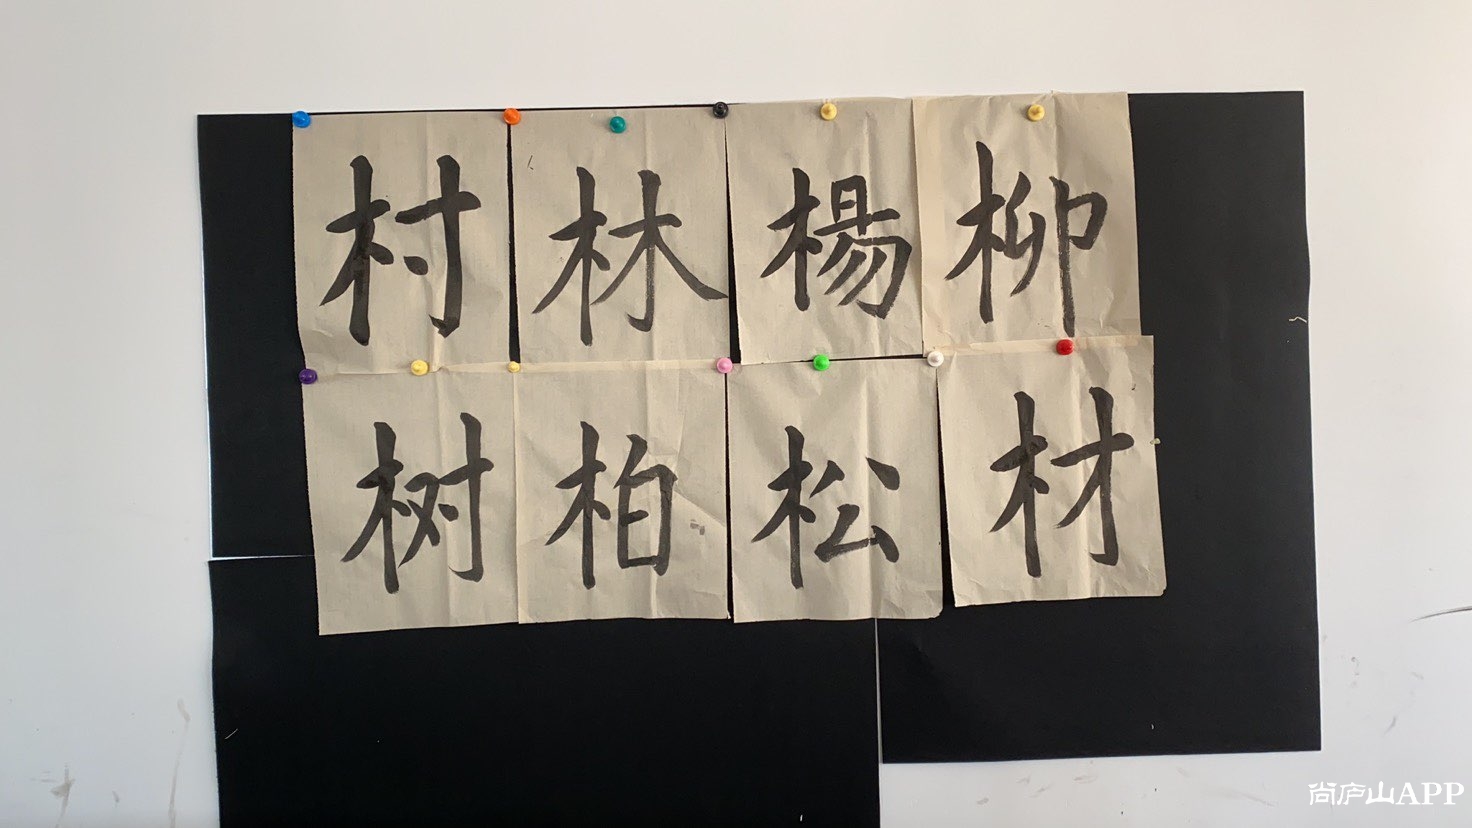 村林楊柳
树柏松材
尚庐山APP